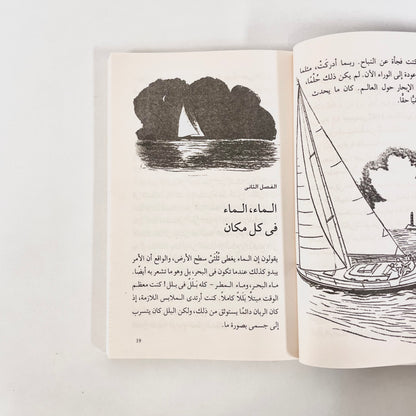 كنت فجأة عن النباح. ربما أدركت، مثلما
عودة إلى الوراء الآن. لم يكن ذلك حُلْمًا،
الإبحار حول العالم. كان ما يحدث
حقًّا.
الفصل الثاني
الـماء، الـماء
في كل مكان
يقولون إن الماء يغطي ثُلُثَيْ سطح الأرض، والواقع أن الأمر
يبدو كذلك عندما تكون في البحر، بل وهو ما تشعر به أيضًا.
ماء البحر، وماء المطر - كله بَلَلٌ في بلل! كنت معظم
الوقت مبتلًا بَلَلًا كاملًا. كنت أرتدي الملابس اللازمة، إذ
كان الربان دائمًا يستوثق من ذلك، ولكن البلل كان يتسرب
إلى جسمي بصورة ما.